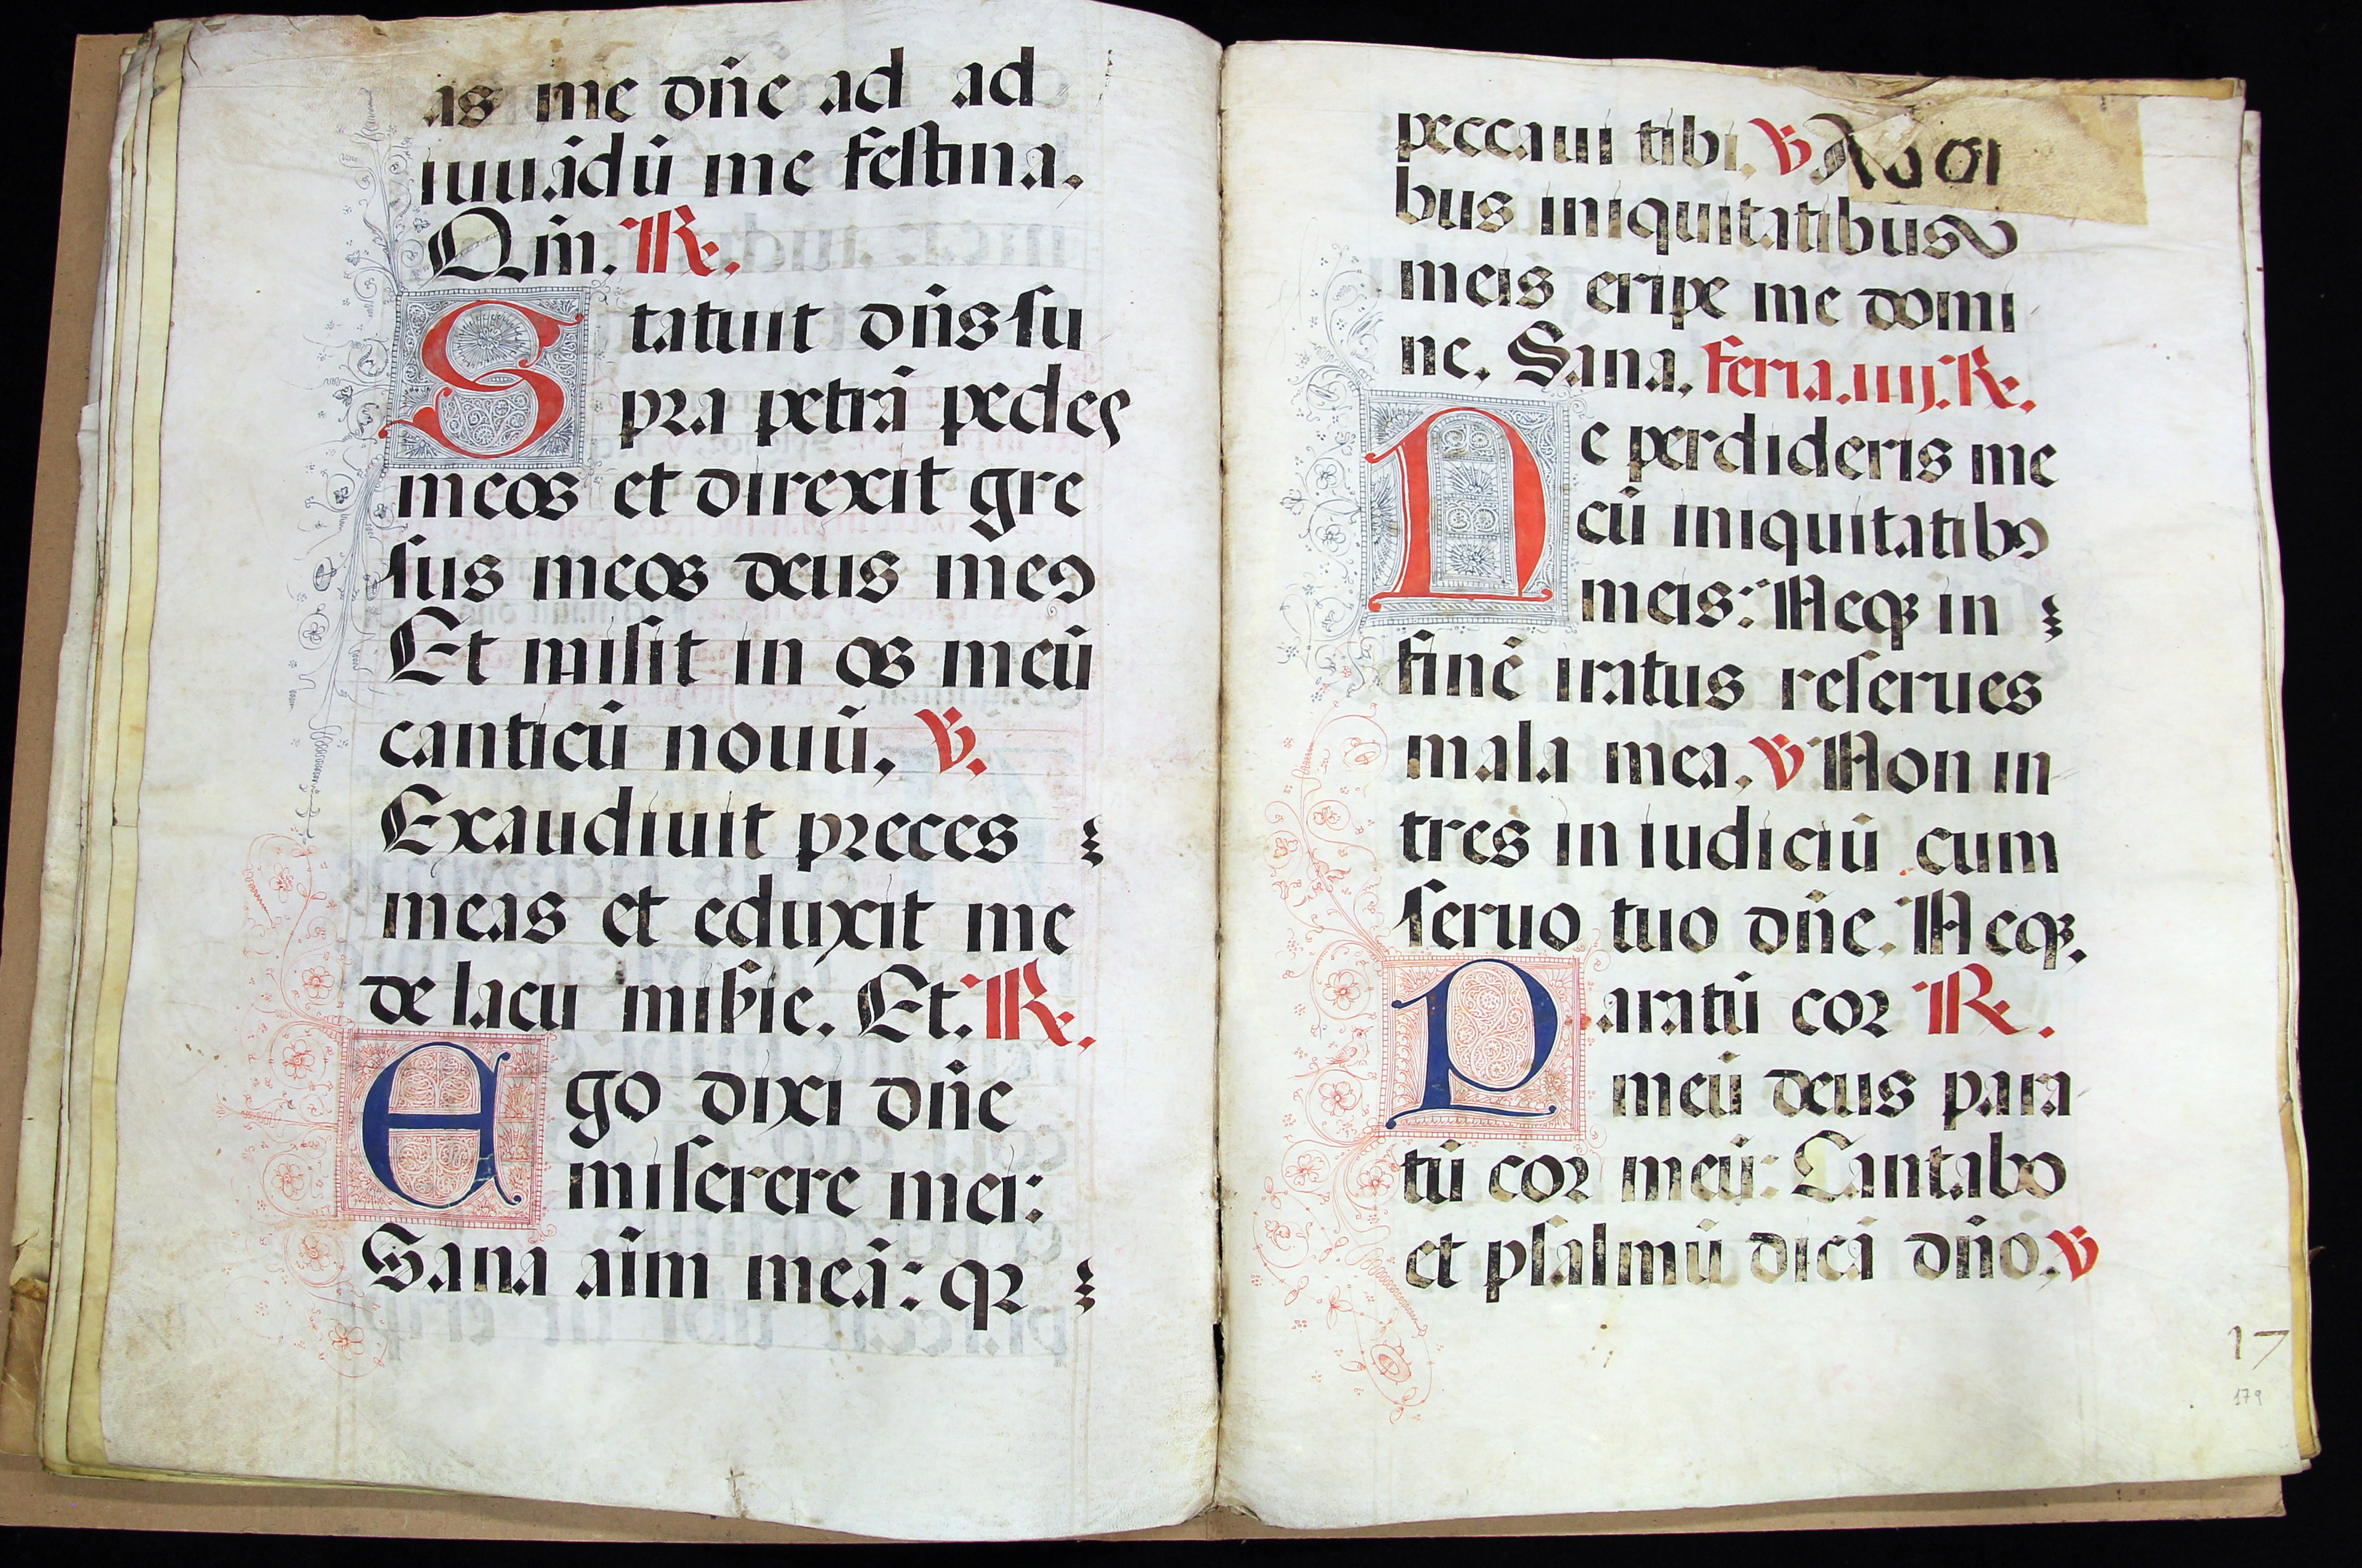 as me dn̄e ad ad
iuuādū me festina.
Qm̄. R̷.
Statuit dn̄s su
pra petrā pedes
meos et direxit gre
sus meos deus meꝰ
Et misit in os meū
canticū nouū. V.
Exaudiuit preces
meas et eduxit me
de lacu mis̄ie. Et. R̷.
Ego dixi dn̄e
miserere mei:
Sana aīm meā: qꝛ
peccaui tibi. V
bus iniquitatibus
meis eripe me domi
ne. Sana. Feria.iiij. R̷.
Ne perdideris me
cū iniquitatibꝰ
meis: Neqꝫ in
finē iratus reserues
mala mea. V Non in
tres in iudiciū cum
seruo tuo dn̄e. Neqꝫ.
Paratū cor R̷.
meū deus para
tū cor meū: Cantabo
et psalmū dicā dn̄o. V
17
179